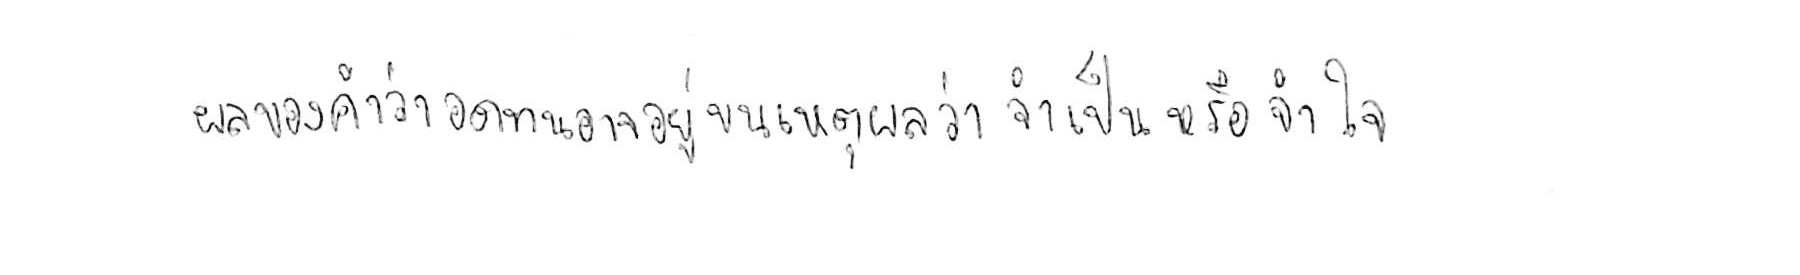 ผลของคำว่า อดทนอาจอยู่บนเหตุผลว่า จำเป็น หรือ จำ ใจ